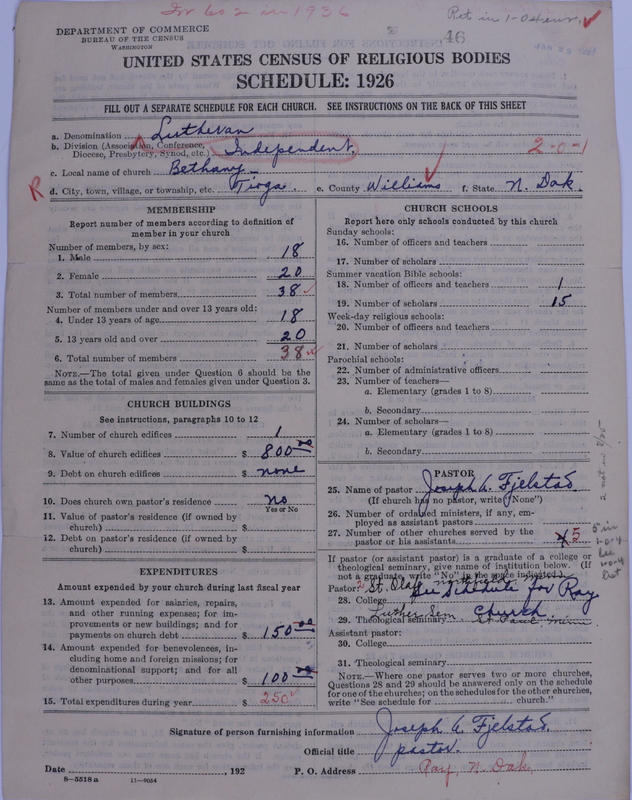 For 602 in 1936
DEPARTMENT OF COMMERCE
BUREAU OF THE CENSUS
WASHINGTON
46
UNITED STATES CENSUS OF RELIGIOUS BODIES
SCHEDULE: 1926
FILL OUT A SEPARATE SCHEDULE FOR EACH CHURCH. SEE INSTRUCTIONS ON THE BACK OF THIS SHEET
a. Denomination Lutheran
b. Division (Association, Conference, Diocese, Presbytery, Synod, etc.) Independent. 2-0-1
c. Local name of church Bethany
R d. City, town, village, or township, etc. Tioga e. County Williams f. State N. Dak.
MEMBERSHIP
Report number of members according to definition of member in your church
Number of members, by sex:
1. Male 18
2. Female 20
3. Total number of members 38
Number of members under and over 13 years old:
4. Under 13 years of age 18
5. 13 years old and over 20
6. Total number of members 38
NOTE.—The total given under Question 6 should be the same as the total of males and females given under Question 3.
CHURCH BUILDINGS
See instructions, paragraphs 10 to 12
7. Number of church edifices 1
8. Value of church edifices $ 800 00
9. Debt on church edifices $ none
10. Does church own pastor's residence no
Yes or No
11. Value of pastor's residence (if owned by church) $
12. Debt on pastor's residence (if owned by church) $
EXPENDITURES
Amount expended by your church during last fiscal year
13. Amount expended for salaries, repairs, and other running expenses; for improvements or new buildings; and for payments on church debt $ 150 00
14. Amount expended for benevolences, including home and foreign missions; for denominational support; and for all other purposes $ 100 00
15. Total expenditures during year $ 250
CHURCH SCHOOLS
Report here only schools conducted by this church
Sunday schools:
16. Number of officers and teachers
17. Number of scholars
Summer vacation Bible schools:
18. Number of officers and teachers 1
19. Number of scholars 15
Week-day religious schools:
20. Number of officers and teachers
21. Number of scholars
Parochial schools:
22. Number of administrative officers
23. Number of teachers—
a. Elementary (grades 1 to 8)
b. Secondary
24. Number of scholars—
a. Elementary (grades 1 to 8)
b. Secondary
PASTOR
25. Name of pastor Joseph A. Fjelstad
(If church has no pastor, write "None")
26. Number of ordained ministers, if any, employed as assistant pastors
27. Number of other churches served by the pastor or his assistants 5
If pastor (or assistant pastor) is a graduate of a college or theological seminary, give name of institution below. (If not a graduate, write "No" in the space indicated).
Pastor: St. Olaf
28. College See Schedule for Ray
29. Theological seminary Luther Sem church
St Paul Minn
Assistant pastor:
30. College
31. Theological seminary
NOTE.—Where one pastor serves two or more churches, Questions 28 and 29 should be answered only on the schedule for one of the churches; on the schedules for the other churches, write "See schedule for church."
Signature of person furnishing information Joseph A Fjelstad.
Official title pastor.
Date , 192 P. O. Address Ray, N. Dak.
8-5518 a 11-9054